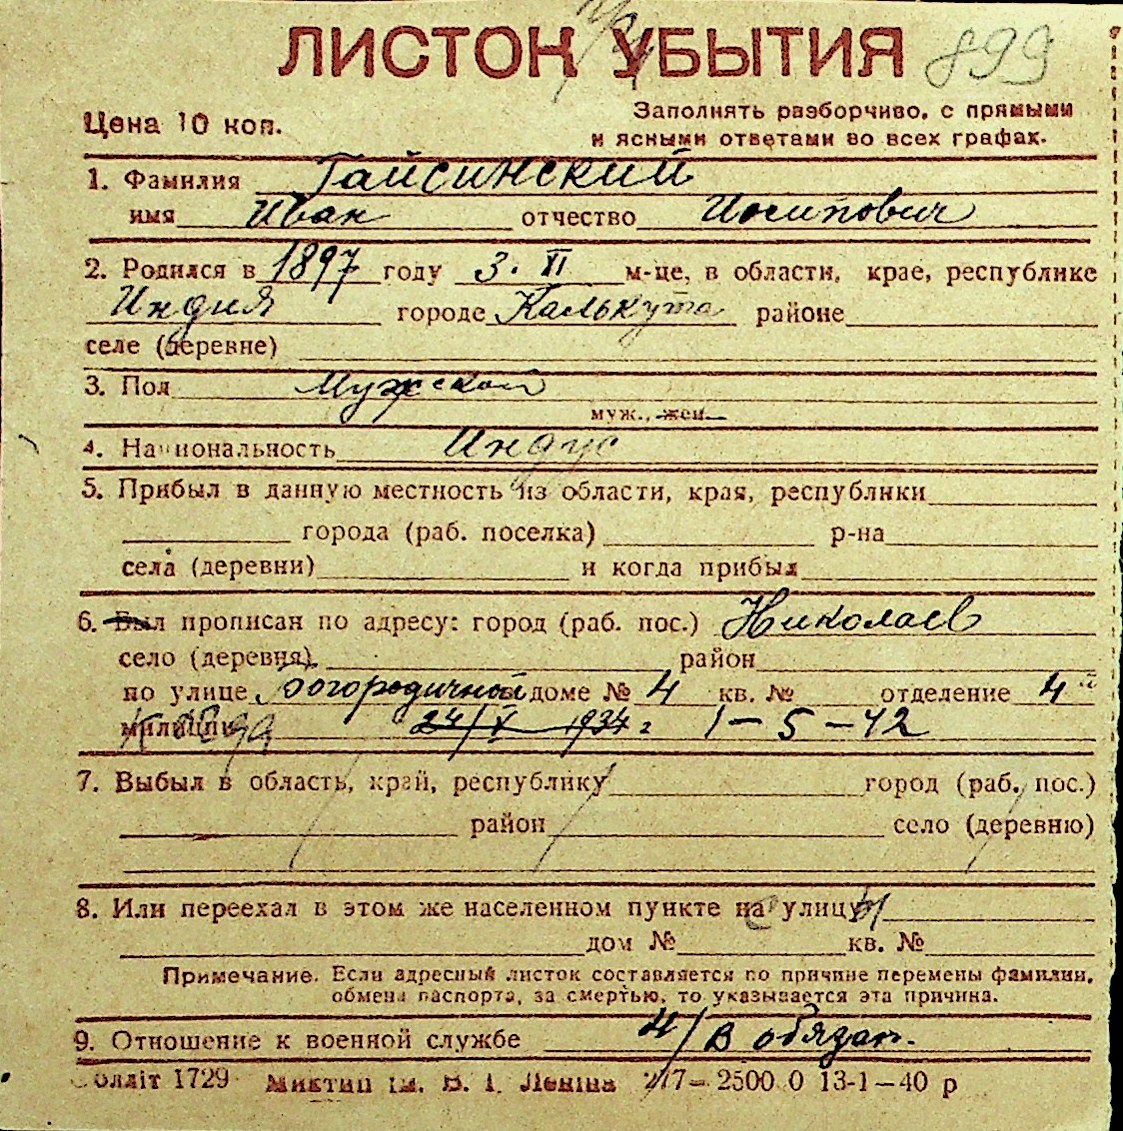 ЛИСТОК УБЫТИЯ 899
Цена 10 коп.
Заполнять разборчиво, с прямыми
и ясными ответами во всех графах.
1. Фамилия Гайсинский
имя Иван отчество Иосипович
2. Родился в 1897 году 3. XI м-це, в области, крае, республике
Индия городе Калькута районе
селе (деревне)
3. Пол Мужской
муж., жен.
4. Национальность Индус
5. Прибыл в данную местность из области, края, республики
города (раб. поселка) р-на
села (деревни) и когда прибыл
6. Был прописан по адресу: город (раб. пос.) Николаев
село (деревня) район
по улице Богородичной доме № 4 кв. № отделение 4й
милиции 24/V 1934 г 1-5-42
7. Выбыл в область, край, республику город (раб. пос.)
район село (деревню)
8. Или переехал в этом же населенном пункте на улицу
дом № кв. №
Примечание. Если адресный листок составляется по причине перемены фамилии,
обмена паспорта, за смертью, то указывается эта причина.
9. Отношение к военной службе н/в обязан.
олліт 1729 Миктип ім. В. І. Леніна 217-2500 0 13-1-40 р